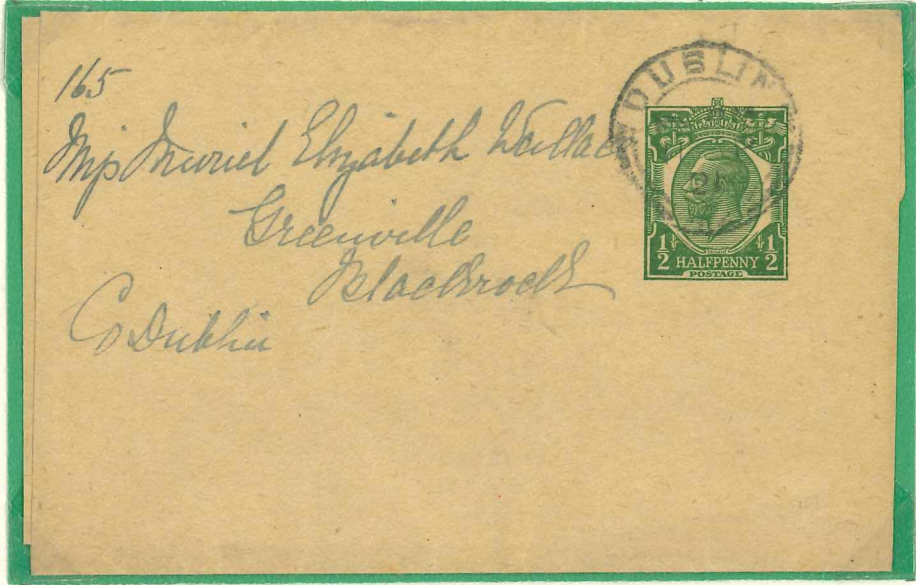 165
Miss Muriel Elizabeth Wallace
Greenville
Blackrock
Co Dublin
DUBLIN
21
½ ½
HALFPENNY
POSTAGE